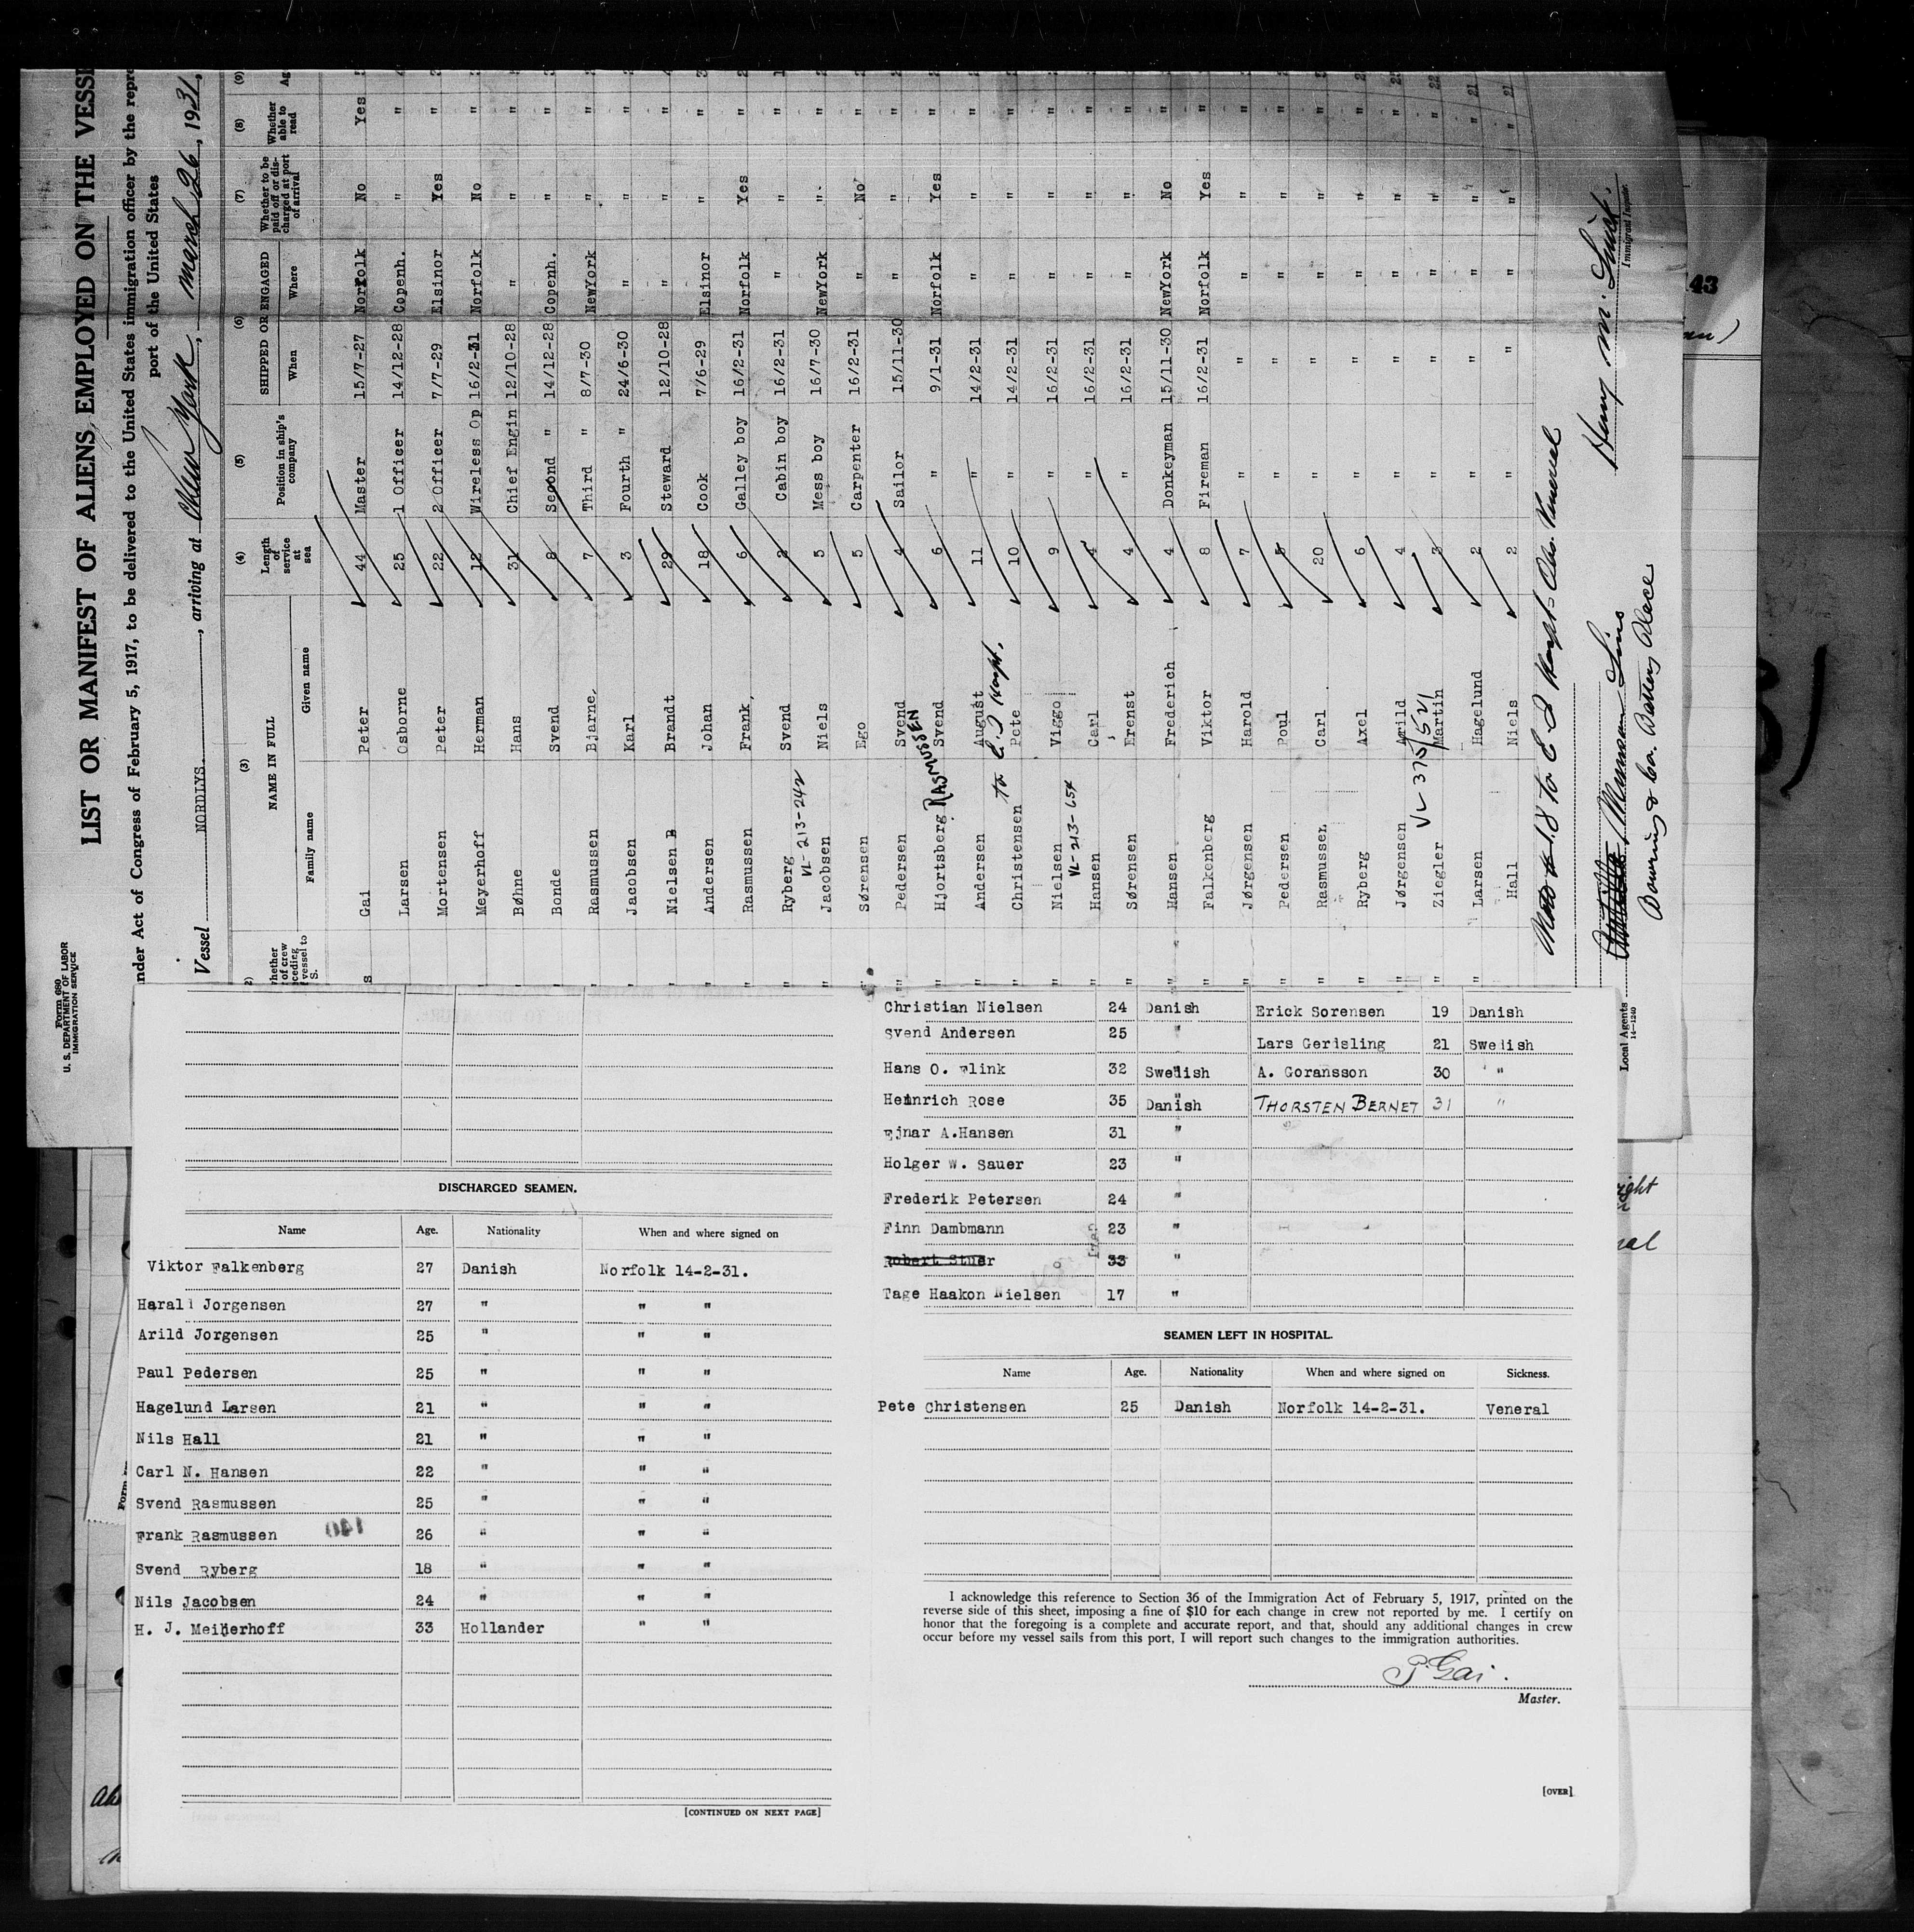 Form 680
U. S. DEPARTMENT OF LABOR
IMMIGRATION SERVICE
LIST OR MANIFEST OF ALIENS EMPLOYED ON THE VESSE
nder Act of Congress of February 5, 1917, to be delivered to the United States immigration officer by the repre
port of the United States
Vessel NORDLYS, arriving at New York, March 26, 1931,
(3) (4) (5) (6) (7) (8) (9)
NAME IN FULL Length of service at sea Position in ship's company SHIPPED OR ENGAGED Whether to be paid off or discharged at port of arrival Whether able to read Ag
Family name Given name When Where
Gai Peter 44 Master 15/7-27 Norfolk No Yes
Larsen Osborne 25 1 Officer 14/12-28 Copenh. " "
Mortensen Peter 22 2 Officer 7/7-29 Elsinor Yes "
Meyerhoff Herman 12 Wireless Op 16/2-31 Norfolk No "
Bøhne Hans 31 Chief Engin 12/10-28 " " "
Bonde Svend 8 Second " 14/12-28 Copenh. " "
Rasmussen Bjarne, 7 Third " 8/7-30 NewYork " "
Jacobsen Karl 3 Fourth " 24/6-30 " " "
Nielsen B Brandt 29 Steward 12/10-28 " " "
Andersen Johan 18 Cook 7/6-29 Elsinor " "
Rasmussen Frank, 6 Galley boy 16/2-31 Norfolk Yes "
Ryberg Svend Cabin boy 16/2-31 " " "
VL-213-242
Jacobsen Niels 5 Mess boy 16/7-30 NewYork " "
Sørensen Ego 5 Carpenter 16/2-31 " No "
Pedersen Svend 4 Sailor 15/11-30 " " "
Hjortsberg RASMUSSEN Svend 6 " 9/1-31 Norfolk Yes "
Andersen August 11 " 14/2-31 " " "
Christensen Pete to E.I. Hospt. 10 " 14/2-31 " " "
Nielsen Viggo 9 " 16/2-31 " " "
VL-213-654
Hansen Carl 4 " 16/2-31 " " "
Sørensen Erenst 4 " 16/2-31 " " "
Hansen Frederich 4 Donkeyman 15/11-30 NewYork No "
Falkenberg Viktor 8 Fireman 16/2-31 Norfolk Yes "
Jørgensen Harold 7 " " " " "
Pedersen Poul " " " " "
Rasmussen Carl 20 " " " " "
Ryberg Axel 6 " " " " "
Jørgensen Arild 4 " " " " "
VL-375/521
Ziegler Martin 3 " " " " "
Larsen Hagelund 2 " " " " "
Hall Niels 2 " " " " "
Henry M.
Immigrant Inspector.
Local Agents
14—1240
Bowring & Co. Battery Place
43
DISCHARGED SEAMEN.
Name Age. Nationality When and where signed on
Viktor Falkenberg 27 Danish Norfolk 14-2-31.
Harald Jorgensen 27 " " "
Arild Jorgensen 25 " " "
Paul Pedersen 25 " " "
Hagelund Larsen 21 " " "
Nils Hall 21 " " "
Carl N. Hansen 22 " " "
Svend Rasmussen 25 " " "
Frank Rasmussen 26 " " "
Svend Ryberg 18 " " "
Nils Jacobsen 24 " " "
H. J. Meiderhoff 33 Hollander " "
[CONTINUED ON NEXT PAGE]
Christian Nielsen 24 Danish Erick Sorensen 19 Danish
Svend Andersen 25 " Lars Gerisling 21 Swedish
Hans O. Flink 32 Swedish A. Goransson 30 "
Heinrich Rose 35 Danish THORSTEN BERNET 31 "
Ejnar A.Hansen 31 "
Holger W. Sauer 23 "
Frederik Petersen 24 "
Finn Dambmann 23 "
Robert Stuer 33 "
Tage Haakon Nielsen 17 "
SEAMEN LEFT IN HOSPITAL.
Name Age. Nationality When and where signed on Sickness.
Pete Christensen 25 Danish Norfolk 14-2-31. Veneral
I acknowledge this reference to Section 36 of the Immigration Act of February 5, 1917, printed on the
reverse side of this sheet, imposing a fine of $10 for each change in crew not reported by me. I certify on
honor that the foregoing is a complete and accurate report, and that, should any additional changes in crew
occur before my vessel sails from this port, I will report such changes to the immigration authorities.
P. Gai.
Master.
[OVER]